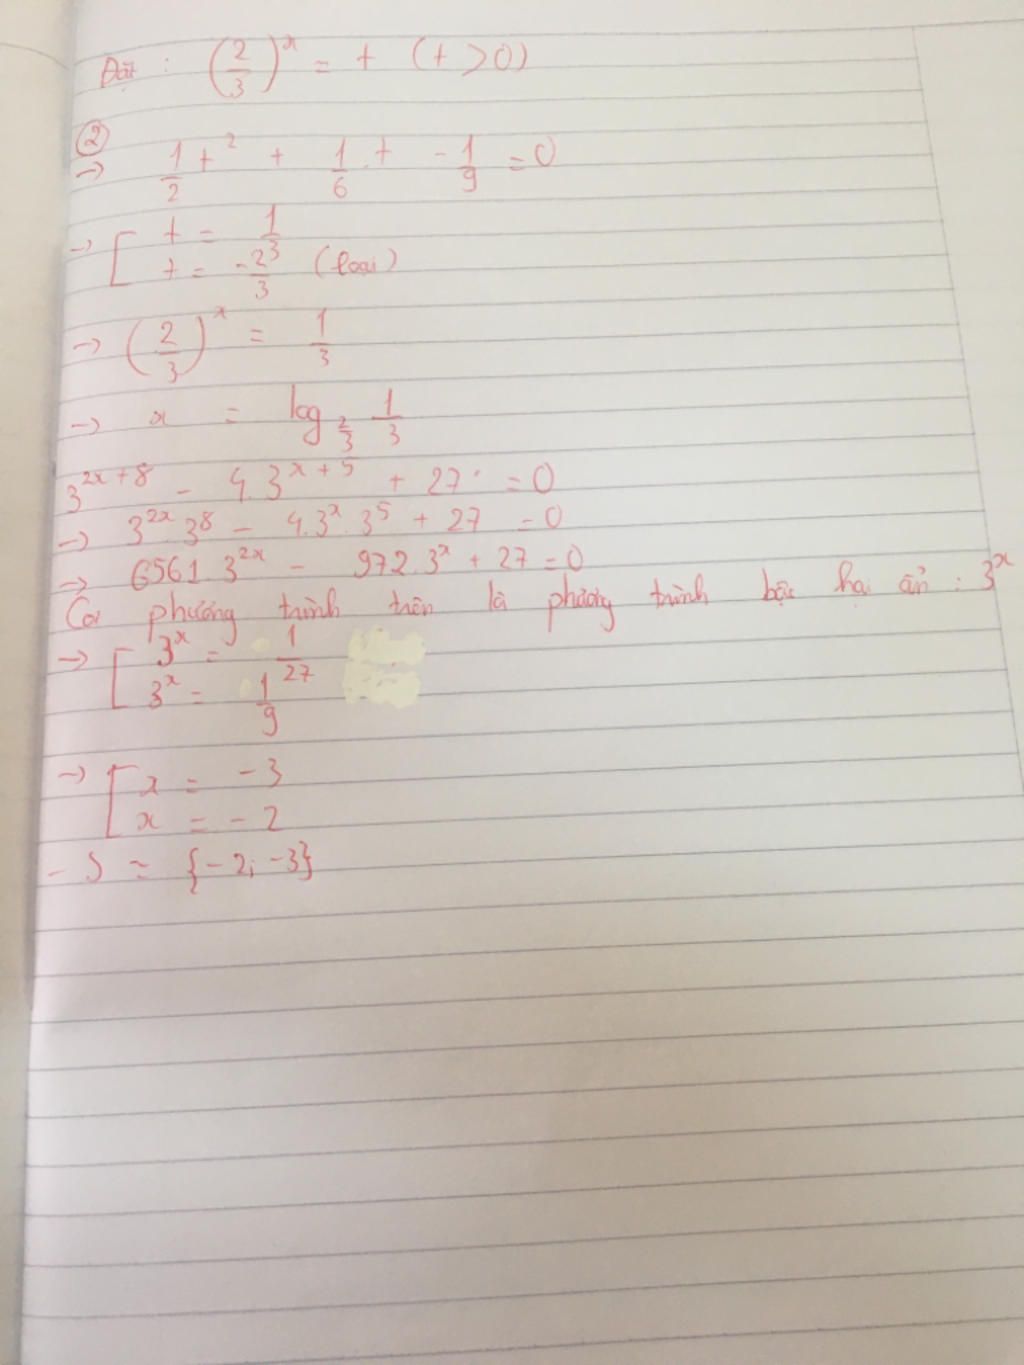 Đặt : (2/3)^x = t (t > 0)
②
→ 1/2 t^2 + 1/6 . t - 1/9 = 0
→ [ t = 1/3
t = -2/3 (loại)
→ (2/3)^x = 1/3
→ x = log_{2/3} 1/3
3^{2x+8} - 4.3^{x+5} + 27 = 0
→ 3^{2x}.3^8 - 4.3^x.3^5 + 27 = 0
→ 6561.3^{2x} - 972.3^x + 27 = 0
Coi phương trình trên là phương trình bậc hai ẩn : 3^x
→ [ 3^x = 1/27
3^x = 1/9
→ [ x = -3
x = -2
- S = {-2; -3}